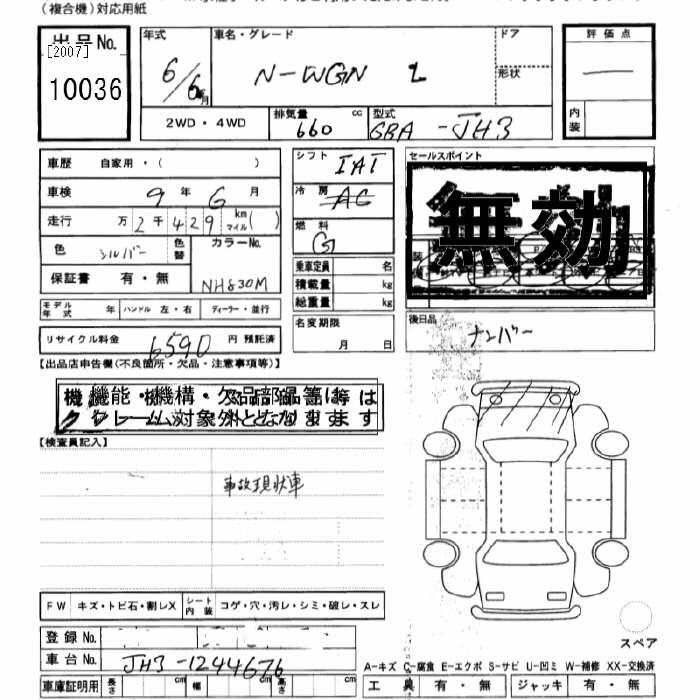 (複合機)対応用紙
出品No.
[2007]
10036
年式
6/6月
車名・グレード
N-WGN L
ドア
形状
評価点
内装
2WD・4WD
排気量 660 cc
型式 6BA-JH3
車歴 自家用・( )
車検 9年6月
走行 万2千429 km マイル( )
色 シルバー
色替
カラーNo.
NH830M
保証書 有・無
モデル年式 年 ハンドル 左・右 ディーラー・並行
リサイクル料金 6590 円 預託済
シフト IAT
冷房 AC
燃料 G
乗車定員 名
積載量 kg
総重量 kg
名変期限
月 日
セールスポイント
無効
後日品
ナンバー
【出品店申告欄(不良箇所・欠品・注意事項等)】
機能・機構・欠品部品等は
クレーム対象外となります
【検査員記入】
事故現状車
FW キズ・トビ石・割レX シート内装 コゲ・穴・汚レ・シミ・破レ・スレ
登録No.
車台No. JH3-1244676
車庫証明用 長さ cm 幅 cm 高さ cm
スペア
A-キズ C-腐食 E-エクボ S-サビ U-凹ミ W-補修 XX-交換済
工具 有・無 ジャッキ 有・無